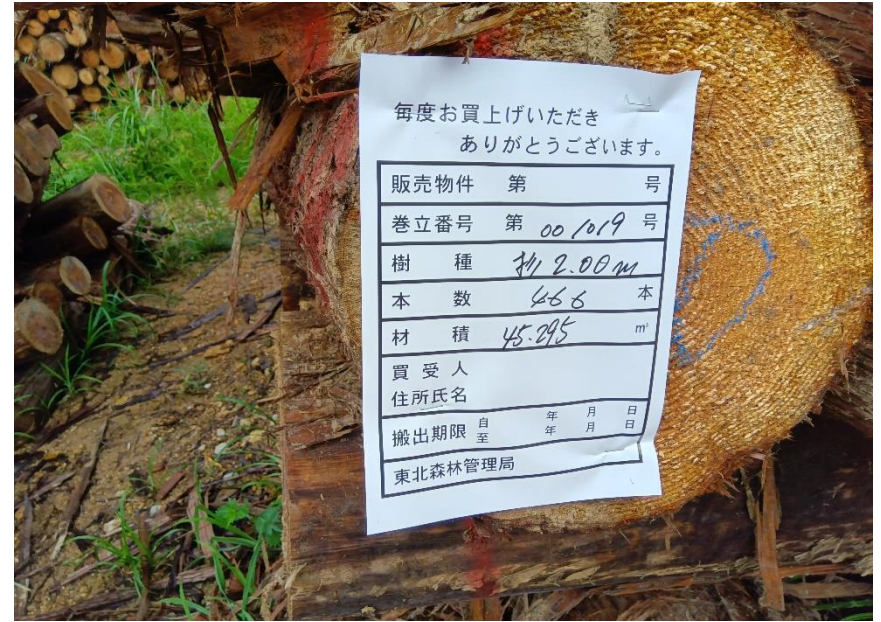 毎度お買上げいただき
ありがとうございます。
販売物件 第 号
巻立番号 第 001019 号
樹種 杉 2.00m
本数 466 本
材積 45.295 m³
買受人
住所氏名
搬出期限 自 年 月 日
至 年 月 日
東北森林管理局